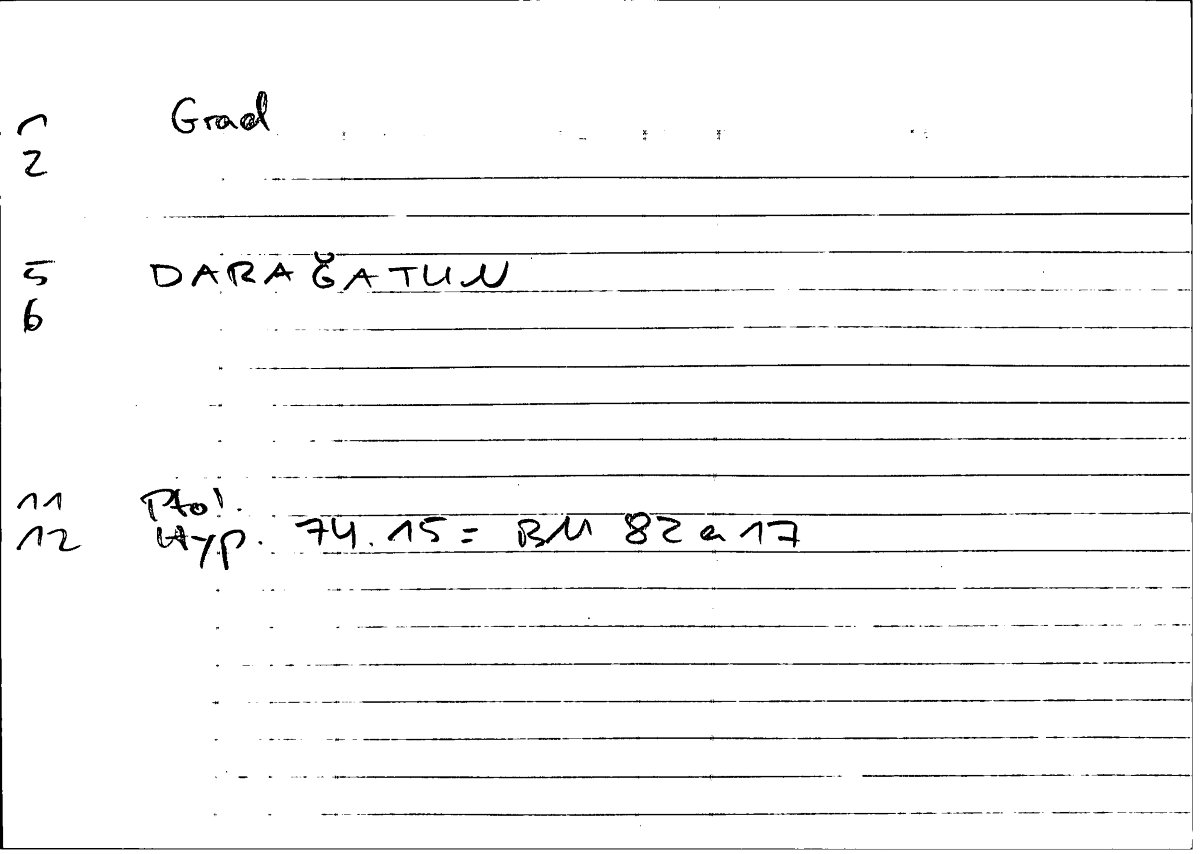 1 Grad
2
5 DARAĞATUN
6
11 Ptol.
12 Hyp. 74.15 = BM 82 a 17